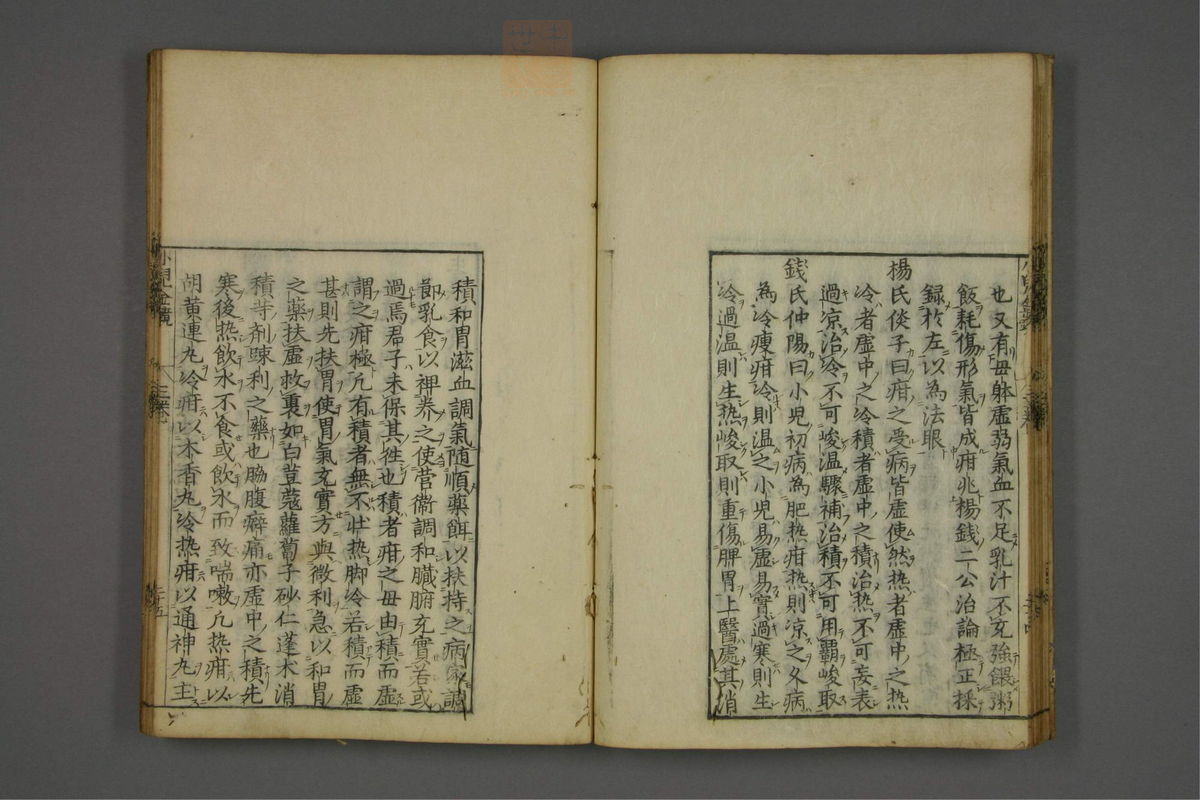 也又有毋躰虛弱氣血不足乳汁不充強餵粥
飯耗傷形氣皆成疳兆楊錢二公治論極正採
録於左以為法眼
楊氏倓子曰疳之受病皆虛使然熱者虛中之熱
冷者虛中之冷積者虛中之積治熱不可妄表
過凉治冷不可峻温驟補治積不可用覇峻取
錢氏仲陽曰小児初病為肥热疳热則凉之久病
為冷痩疳冷則温之小児易虛易實過寒則生
冷過温則生热峻取則重傷脾胃上醫處其消
積和胃滋血調氣随順藥餌以扶持之病家調
節乳食以禆养之使营衞調和臟腑充實若或
過焉君子未保其徃也積者疳之母由積而虛
謂之疳極凢有積者無不壮热脚冷若積而虛
甚則先扶胃使胃氣充實方與微利急以和胃
之藥扶虛救裏如白荳蔻蘿蔔子砂仁蓬术消
積等剤踈利之藥也脇腹癖痛亦虛中之積先
寒後热飲水不食或飲水而致喘嗽凢热疳以
胡黄連丸冷疳以木香丸冷热疳以通神丸主